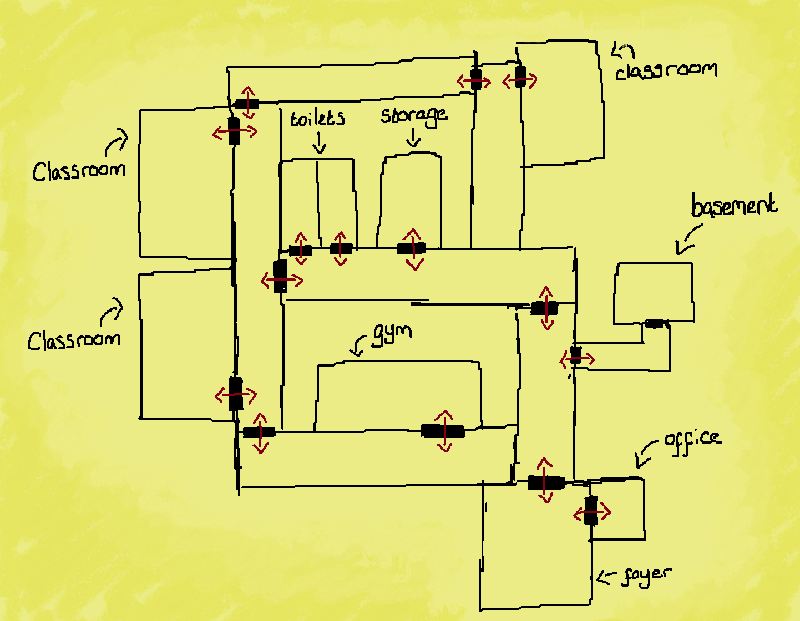 classroom
toilets
storage
Classroom
basement
Classroom
gym
office
foyer